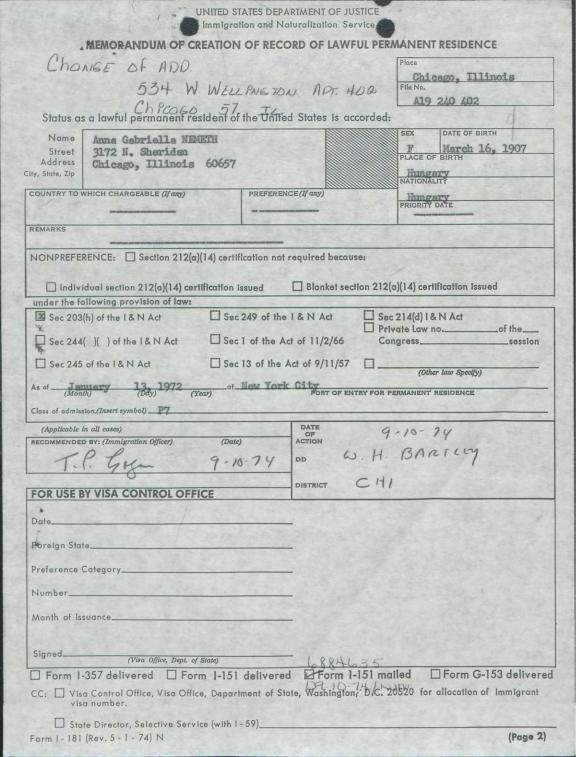 UNITED STATES DEPARTMENT OF JUSTICE
Immigration and Naturalization Service
MEMORANDUM OF CREATION OF RECORD OF LAWFUL PERMANENT RESIDENCE
CHANGE OF ADD.
534 W WELLINGTON APT. 402
CHICAGO 57 IL
Place
Chicago, Illinois
File No.
A19 240 402
Status as a lawful permanent resident of the United States is accorded:
Name Anna Gabriella NEMETH
Street 3172 N. Sheridan
Address Chicago, Illinois 60657
City, State, Zip
SEX DATE OF BIRTH
F March 16, 1907
PLACE OF BIRTH
Hungary
NATIONALITY
Hungary
PRIORITY DATE
COUNTRY TO WHICH CHARGEABLE (If any) PREFERENCE (If any)
REMARKS
NONPREFERENCE: Section 212(a)(14) certification not required because:
Individual section 212(a)(14) certification issued Blanket section 212(a)(14) certification issued
under the following provision of law:
Sec 203(h) of the I & N Act Sec 249 of the I & N Act Sec 214(d) I & N Act
Private Law no. of the
Sec 244( )( ) of the I & N Act Sec 1 of the Act of 11/2/66 Congress, session
Sec 245 of the I & N Act Sec 13 of the Act of 9/11/57
(Other law Specify)
As of January 13, 1972 at New York City
(Month) (Day) (Year) PORT OF ENTRY FOR PERMANENT RESIDENCE
Class of admission, (Insert symbol) P7
(Applicable in all cases)
RECOMMENDED BY: (Immigration Officer) (Date)
9-10-74
DATE OF ACTION 9-10-74
DD W. H. BARTLEY
DISTRICT CHI
FOR USE BY VISA CONTROL OFFICE
Date
Foreign State
Preference Category
Number
Month of Issuance
Signed
(Visa Office, Dept. of State)
6884635
Form I-357 delivered Form I-151 delivered Form I-151 mailed Form G-153 delivered
CC: Visa Control Office, Visa Office, Department of State, Washington, D.C. 20520 for allocation of Immigrant
visa number.
State Director, Selective Service (with I-59)
Form I-181 (Rev. 5-1-74) N (Page 2)